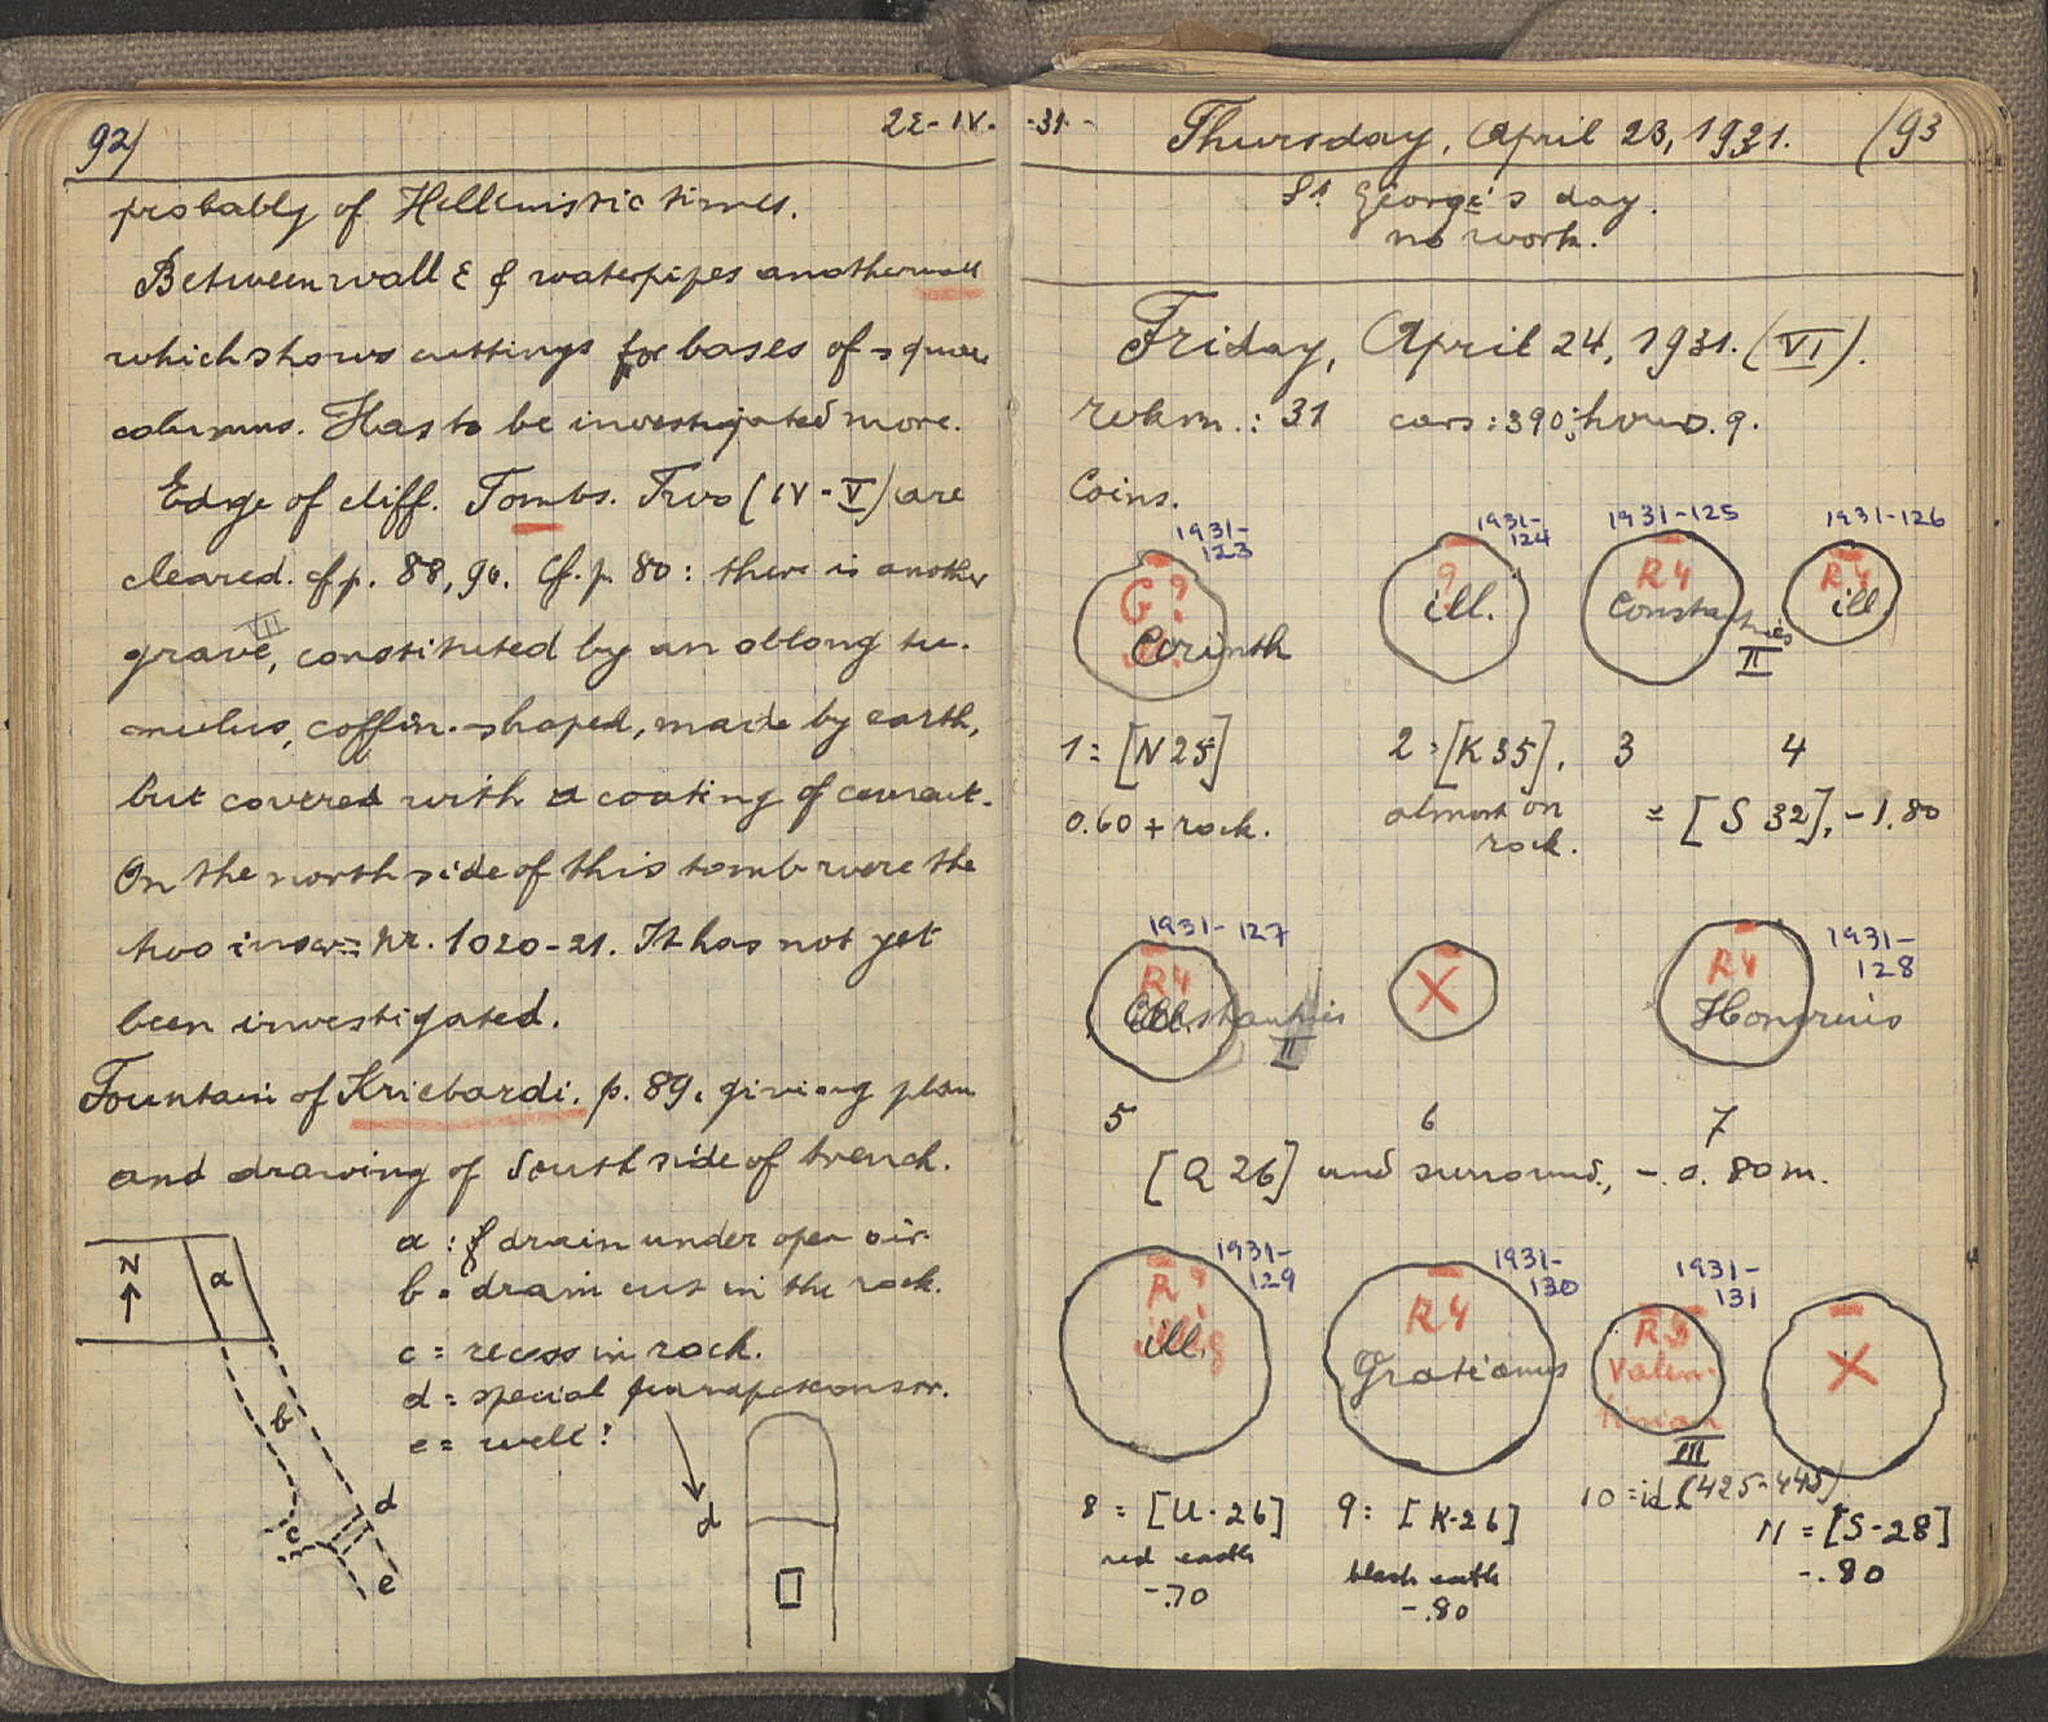 92)
22-IV.-31-
probably of Hellenistic times.
Between wall E & waterpipes another wall
which shows cuttings for bases of square
columns. Has to be investigated more.
Edge of cliff. Tombs. Two (IV-V) are
cleared. cf p. 88, 90. Cf. p. 80: there is another
VII
grave, constituted by an oblong tu-
mulus, coffin-shaped, made by earth,
but covered with a coating of cement.
On the north side of this tomb were the
two inscr= nr. 1020-21. It has not yet
been investigated.
Fountain of Kriebardi. p. 89. giving plan
and drawing of South side of trench.
a : drain under open air.
b = drain cut in the rock.
c = recess in rock.
d = special
e = well?
N
a
b
c
d
e
d
Thursday, April 23, 1931.
(93
St. George's day.
no work.
Friday, April 24, 1931. (VI).
workm.: 31 cars: 390; hours. 9.
Coins.
1931-123
G ?
Corinth
1931-124
?
ill.
1931-125
R4
Constantius II
1931-126
R4
ill.
1 = [N 25]
0.60 + rock.
2 = [K 35],
almost on
rock.
3 4
= [S 32], -1.80
1931-127
R4
Constantius II
X
1931-128
R4
Honorius
5 6 7
[Q 26] and surround., -.0.80 m.
1931-129
R ?
ill.
1931-130
R4
Gratianus
1931-131
Valen-
tinian
III
X
8 = [U-26]
red earth
-.70
9 = [K-26]
black earth
-.80
10 = id. (425-445)
11 = [S-28]
-.80